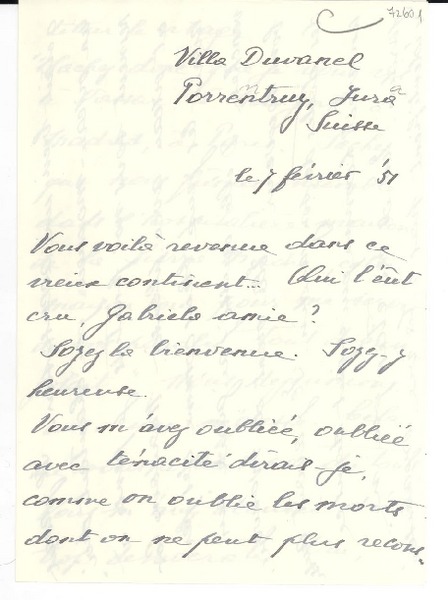 72601
Villa Duvanel
Porrentruy, Jura
Suisse
le 7 février '51
Vous voilà revenue dans ce
vieux continent... Qui l'eût
cru, Gabriela amie?
Soyez la bienvenue. Soyez-y
heureuse.
Vous m'avez oubliée, oubliée
avec ténacité dirais-je,
comme on oublie les morts
dont on ne peut plus recons-